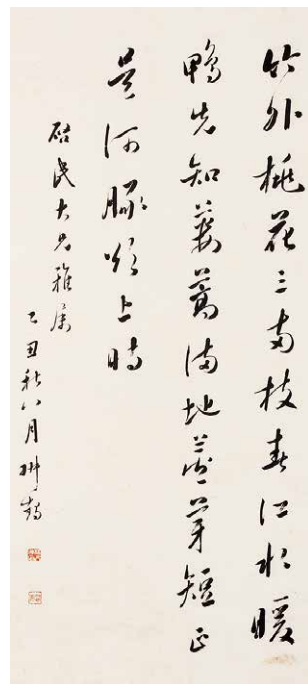 竹外桃花三兩枝春江水暖
鴨先知蔞蒿滿地蘆芽短正
是河豚欲上時
民大兄雅属
乙丑秋八月